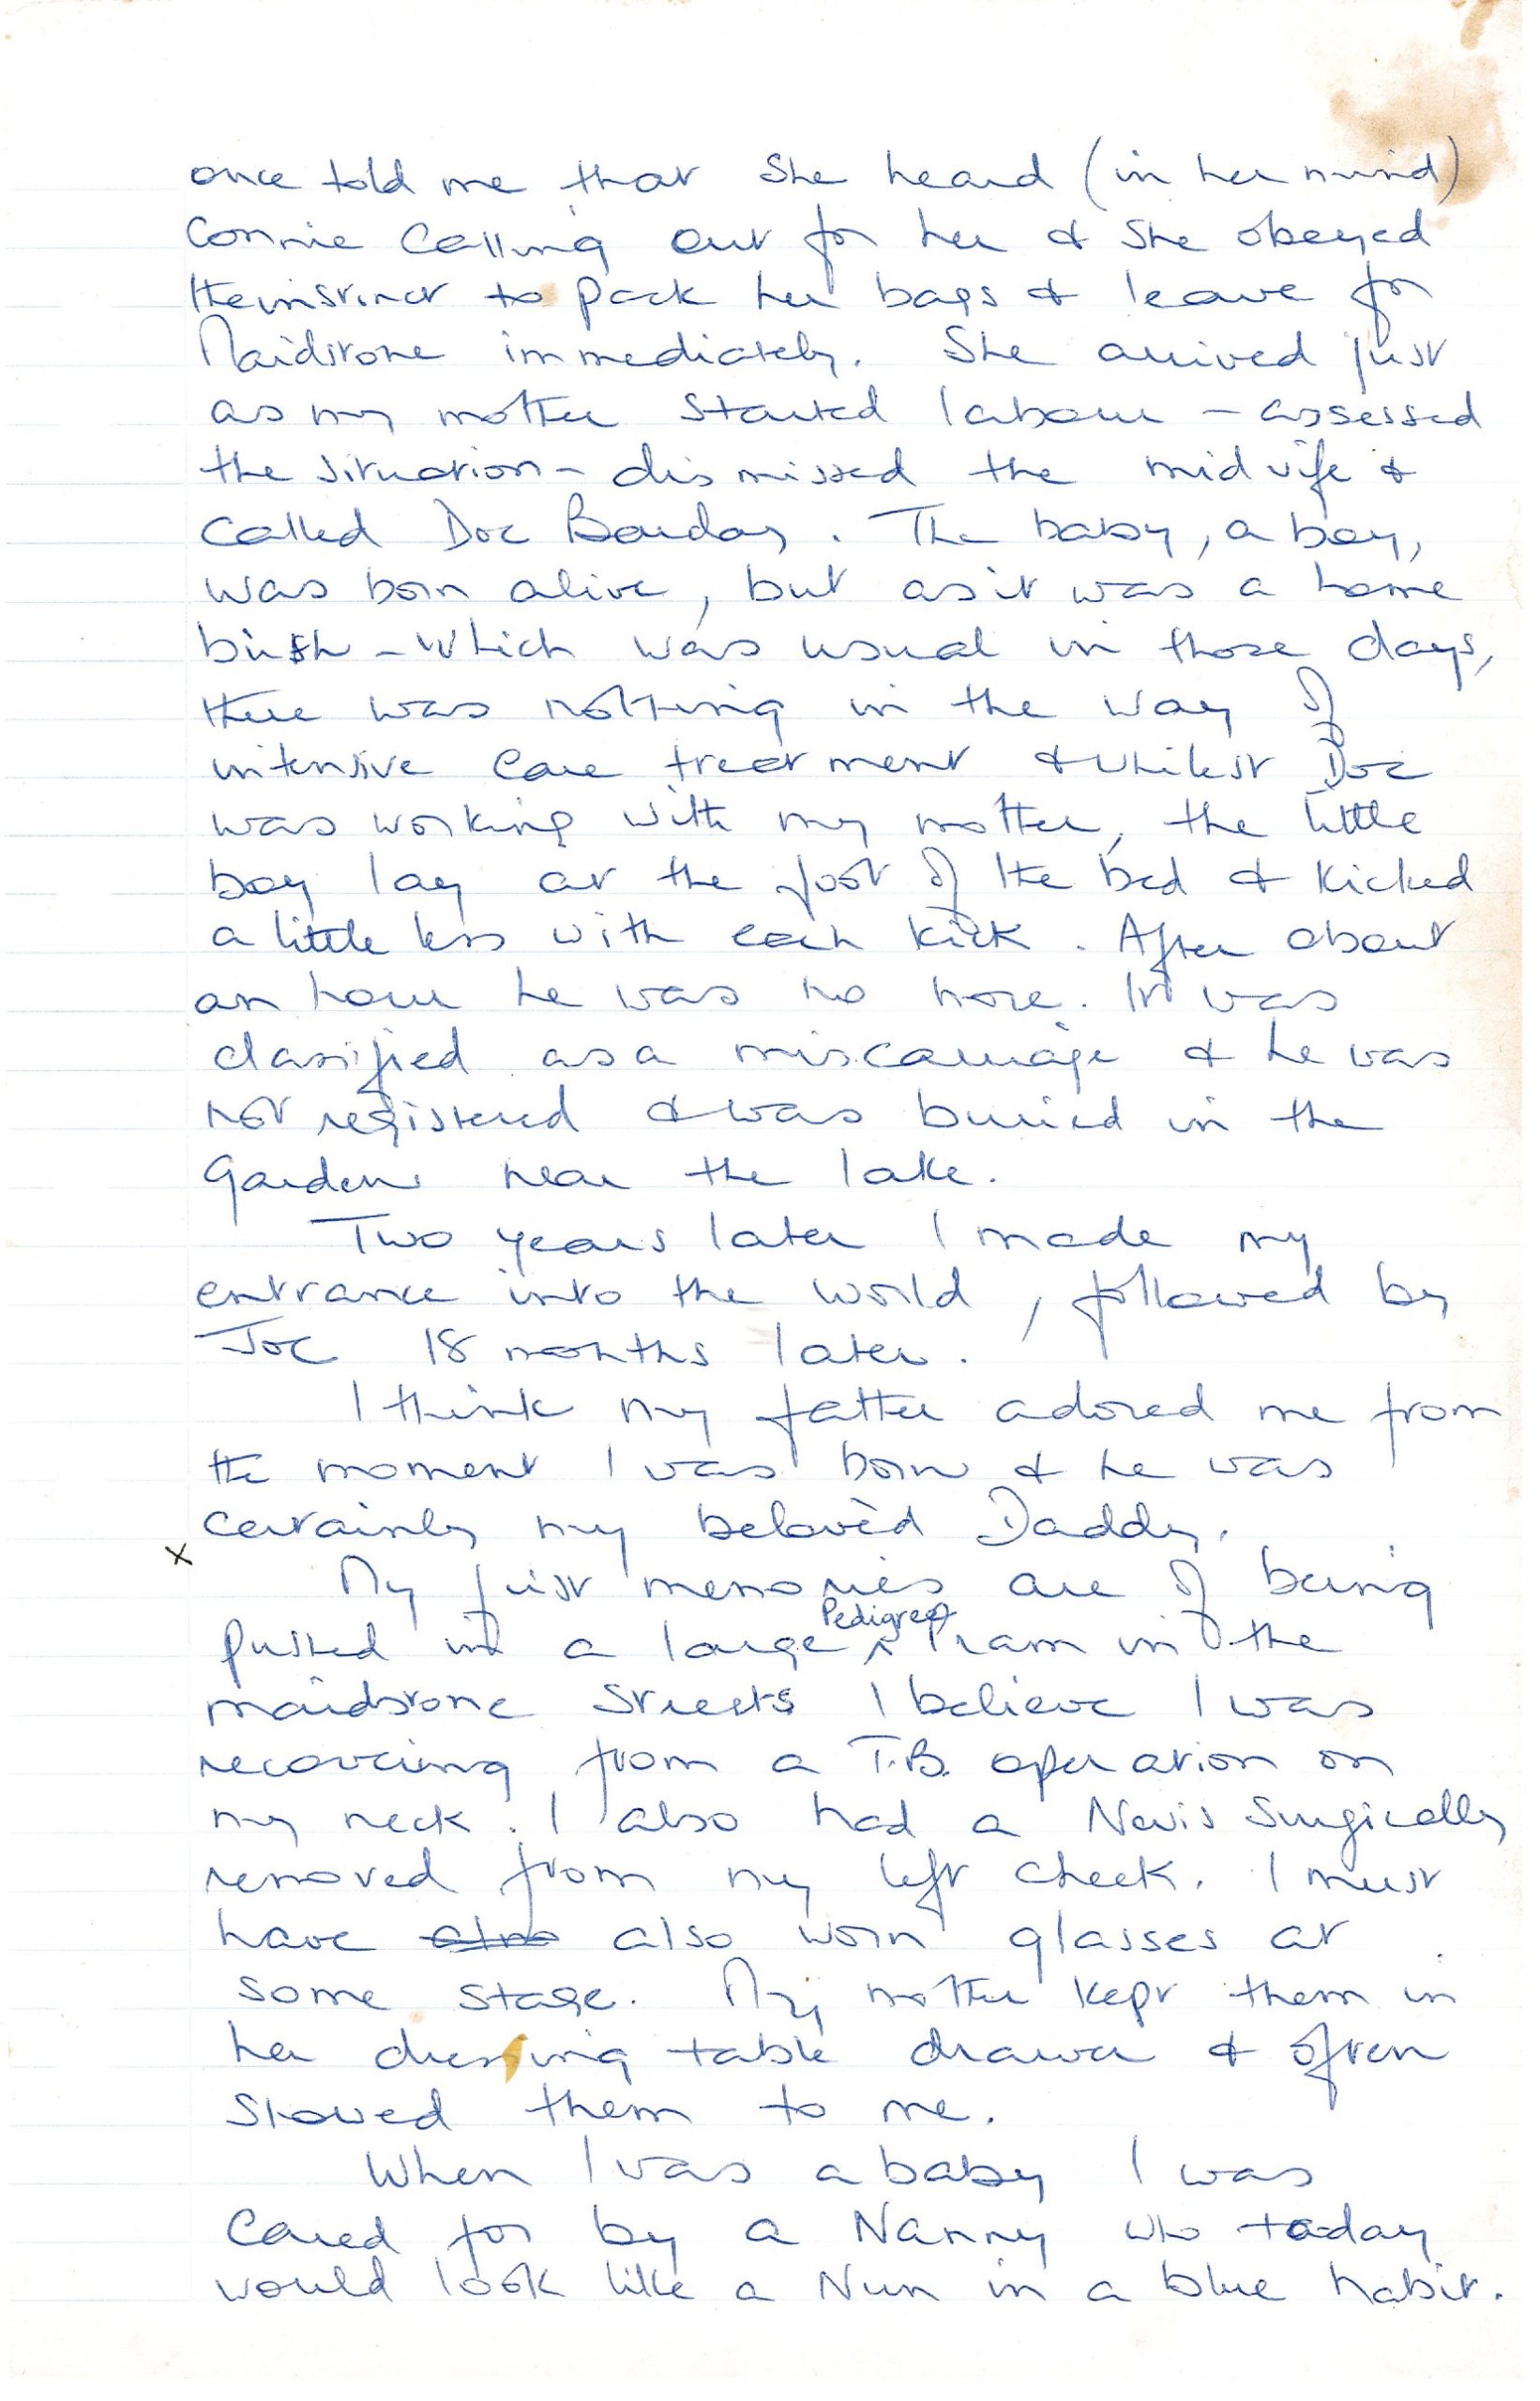 once told me that She heard (in her mind)
Connie Calling out for her & She obeyed
the instinct to pack her bags & leave for
Maidstone immediately. She arrived just
as my mother started labour - assessed
the situation - dismissed the midwife &
called Doc . The baby, a boy,
was born alive, but as it was a home
birth - which was usual in those days,
there was nothing in the way of
intensive care treatment & whilest Doc
was working with my mother, the little
boy lay at the foot of the bed & kicked
a little less with each kick. After about
an hour he was no more. It was
classified as a miscarriage & he was
not registered & was buried in the
Gardens near the lake.
Two years later I made my
entrance into the world, followed by
Joe 18 months later.
I think my father adored me from
the moment I was born & he was
certainly my beloved Daddy.
x
My first memories are of being
Pedigree
pushed in a large ^ Pram in the
maidstone Streets I believe I was
recovering from a T.B. operation on
my neck. I also had a Nevis Surgically
removed from my left cheek. I must
have also also worn glasses at
some stage. My mother kept them in
her dressing table drawer & often
showed them to me.
When I was a baby I was
Cared for by a Nanny who today
would look like a Nun in a blue habit.